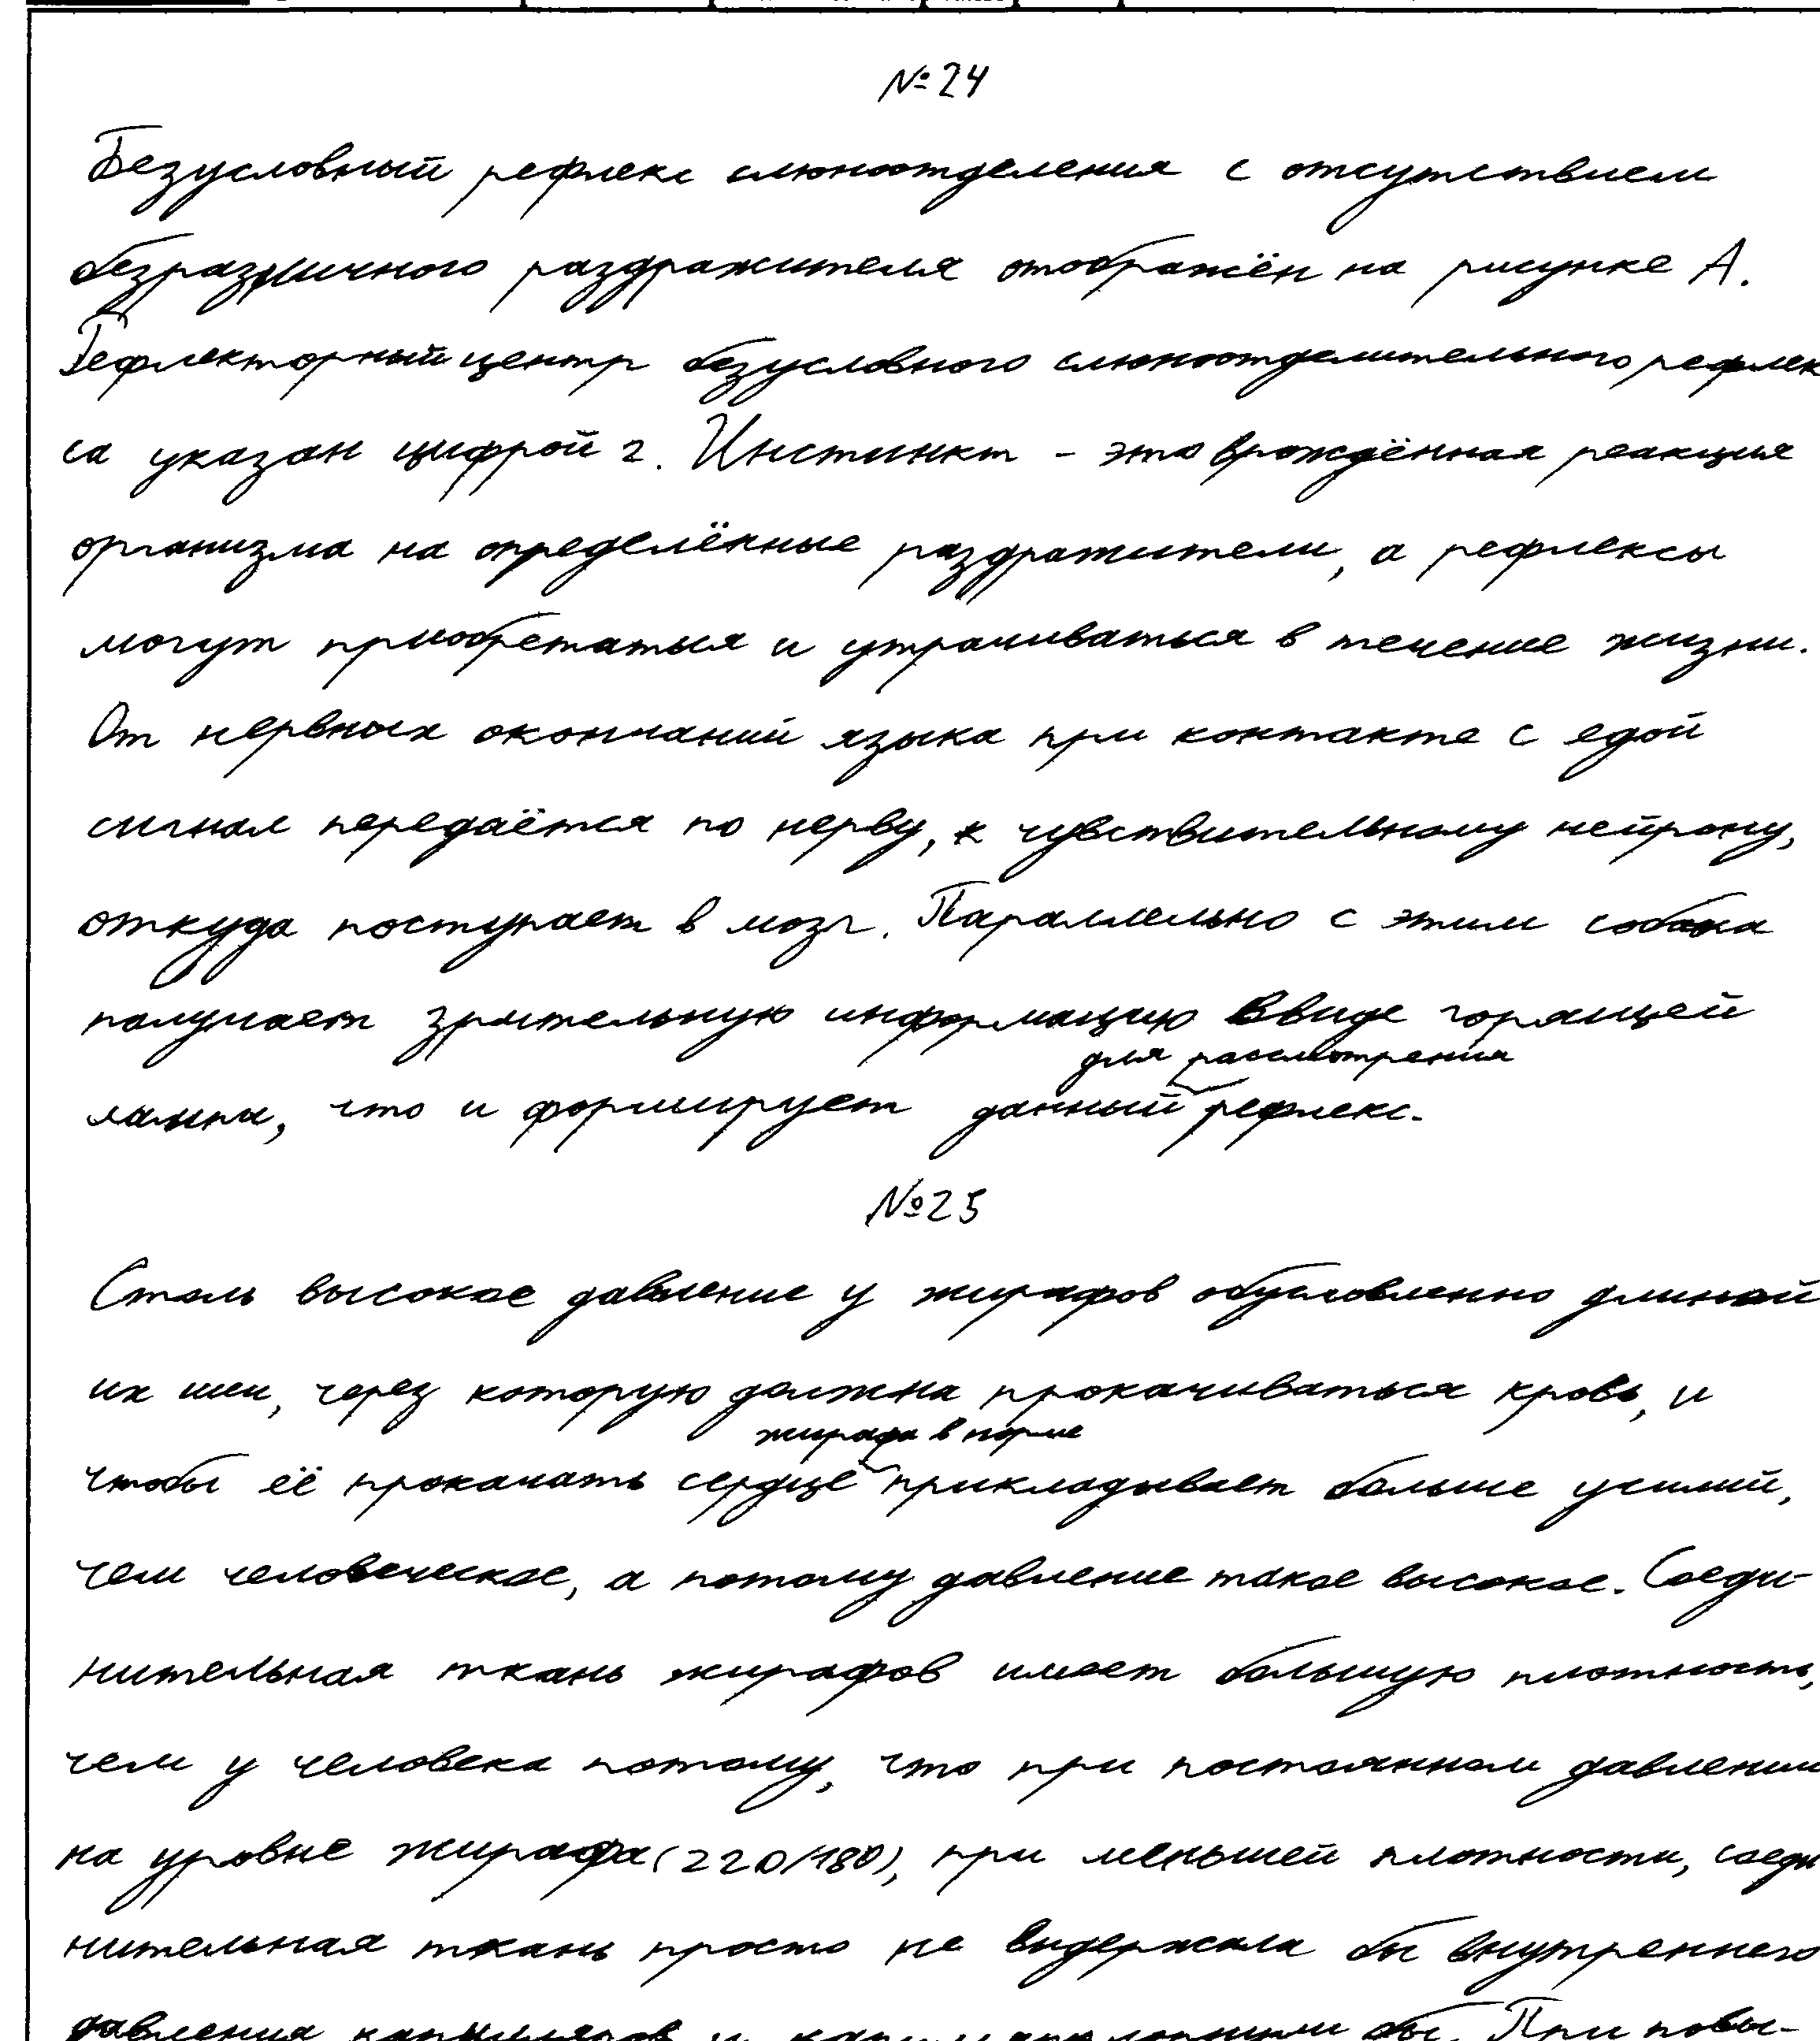 №24
Безусловный рефлекс слюноотделения с отсутствием
безразличного раздражителя отображён на рисунке А.
Рефлекторный центр безусловного слюноотделительного рефлек
са указан цифрой 2. Инстинкт - это врождённая реакция
организма на определённые раздражители, а рефлексы
могут приобретаться и утрачиваться в течение жизни.
От нервных окончаний языка при контакте с едой
сигнал передаётся по нерву, к чувствительному нейрону,
откуда поступает в мозг. Параллельно с этим собака
получает зрительную информацию ввиде горящей
для рассмотрения
лампы, что и формирует данный рефлекс.
№25
Столь высокое давление у жирафов обусловленно длинной
их шеи, через которую должна прокачиваться кровь, и
жирафа в норме
чтобы её прокачать сердце прикладывает больше усилий,
чем человеческое, а потому давление такое высокое. Соеди-
нительная ткань жирафов имеет большую плотность,
чем у человека потому, что при постоянном давлении
на уровне жирафа (220/180), при меньшей плотности, соеди
нительная ткань просто не выдержала бы внутреннего
давления капилляров и бы. При повы-